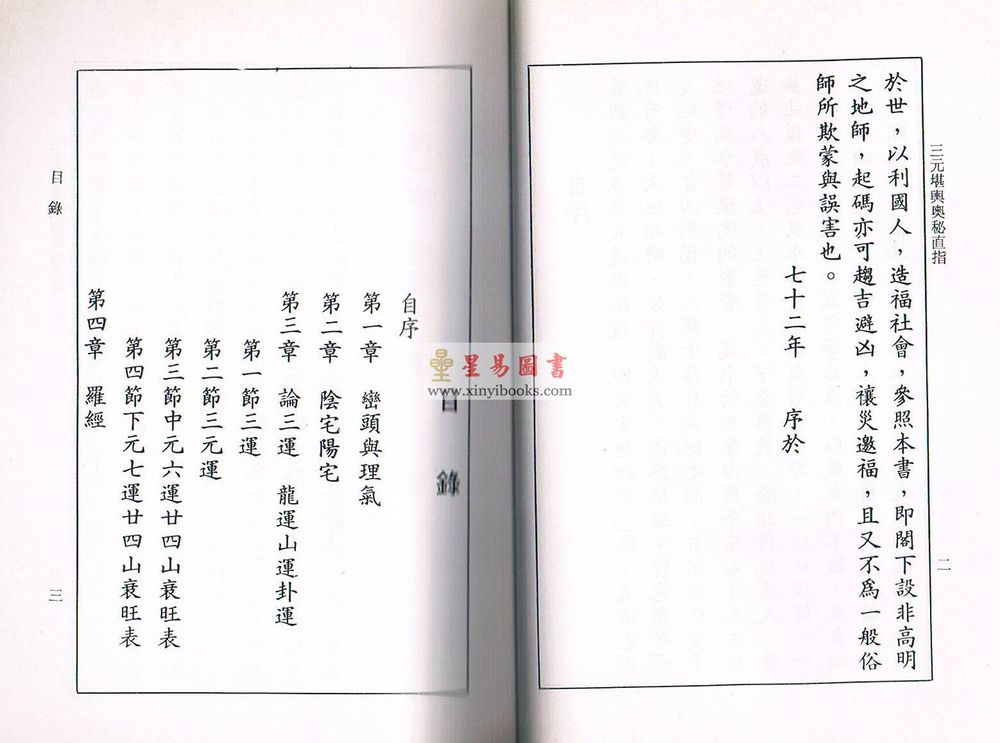 三元堪輿奧秘直指
二
於世，以利國人，造福社會，參照本書，即閣下設非高明
之地師，起碼亦可趨吉避凶，禳災邀福，且又不為一般俗
師所欺蒙與誤害也。
七十二年　序於
目錄
自序
第一章　巒頭與理氣
第二章　陰宅陽宅
第三章　論三運　龍運山運卦運
第一節三運
第二節三元運
第三節中元六運廿四山衰旺表
第四節下元七運廿四山衰旺表
第四章　羅經
目錄
三
星易圖書
www.xinyibooks.com